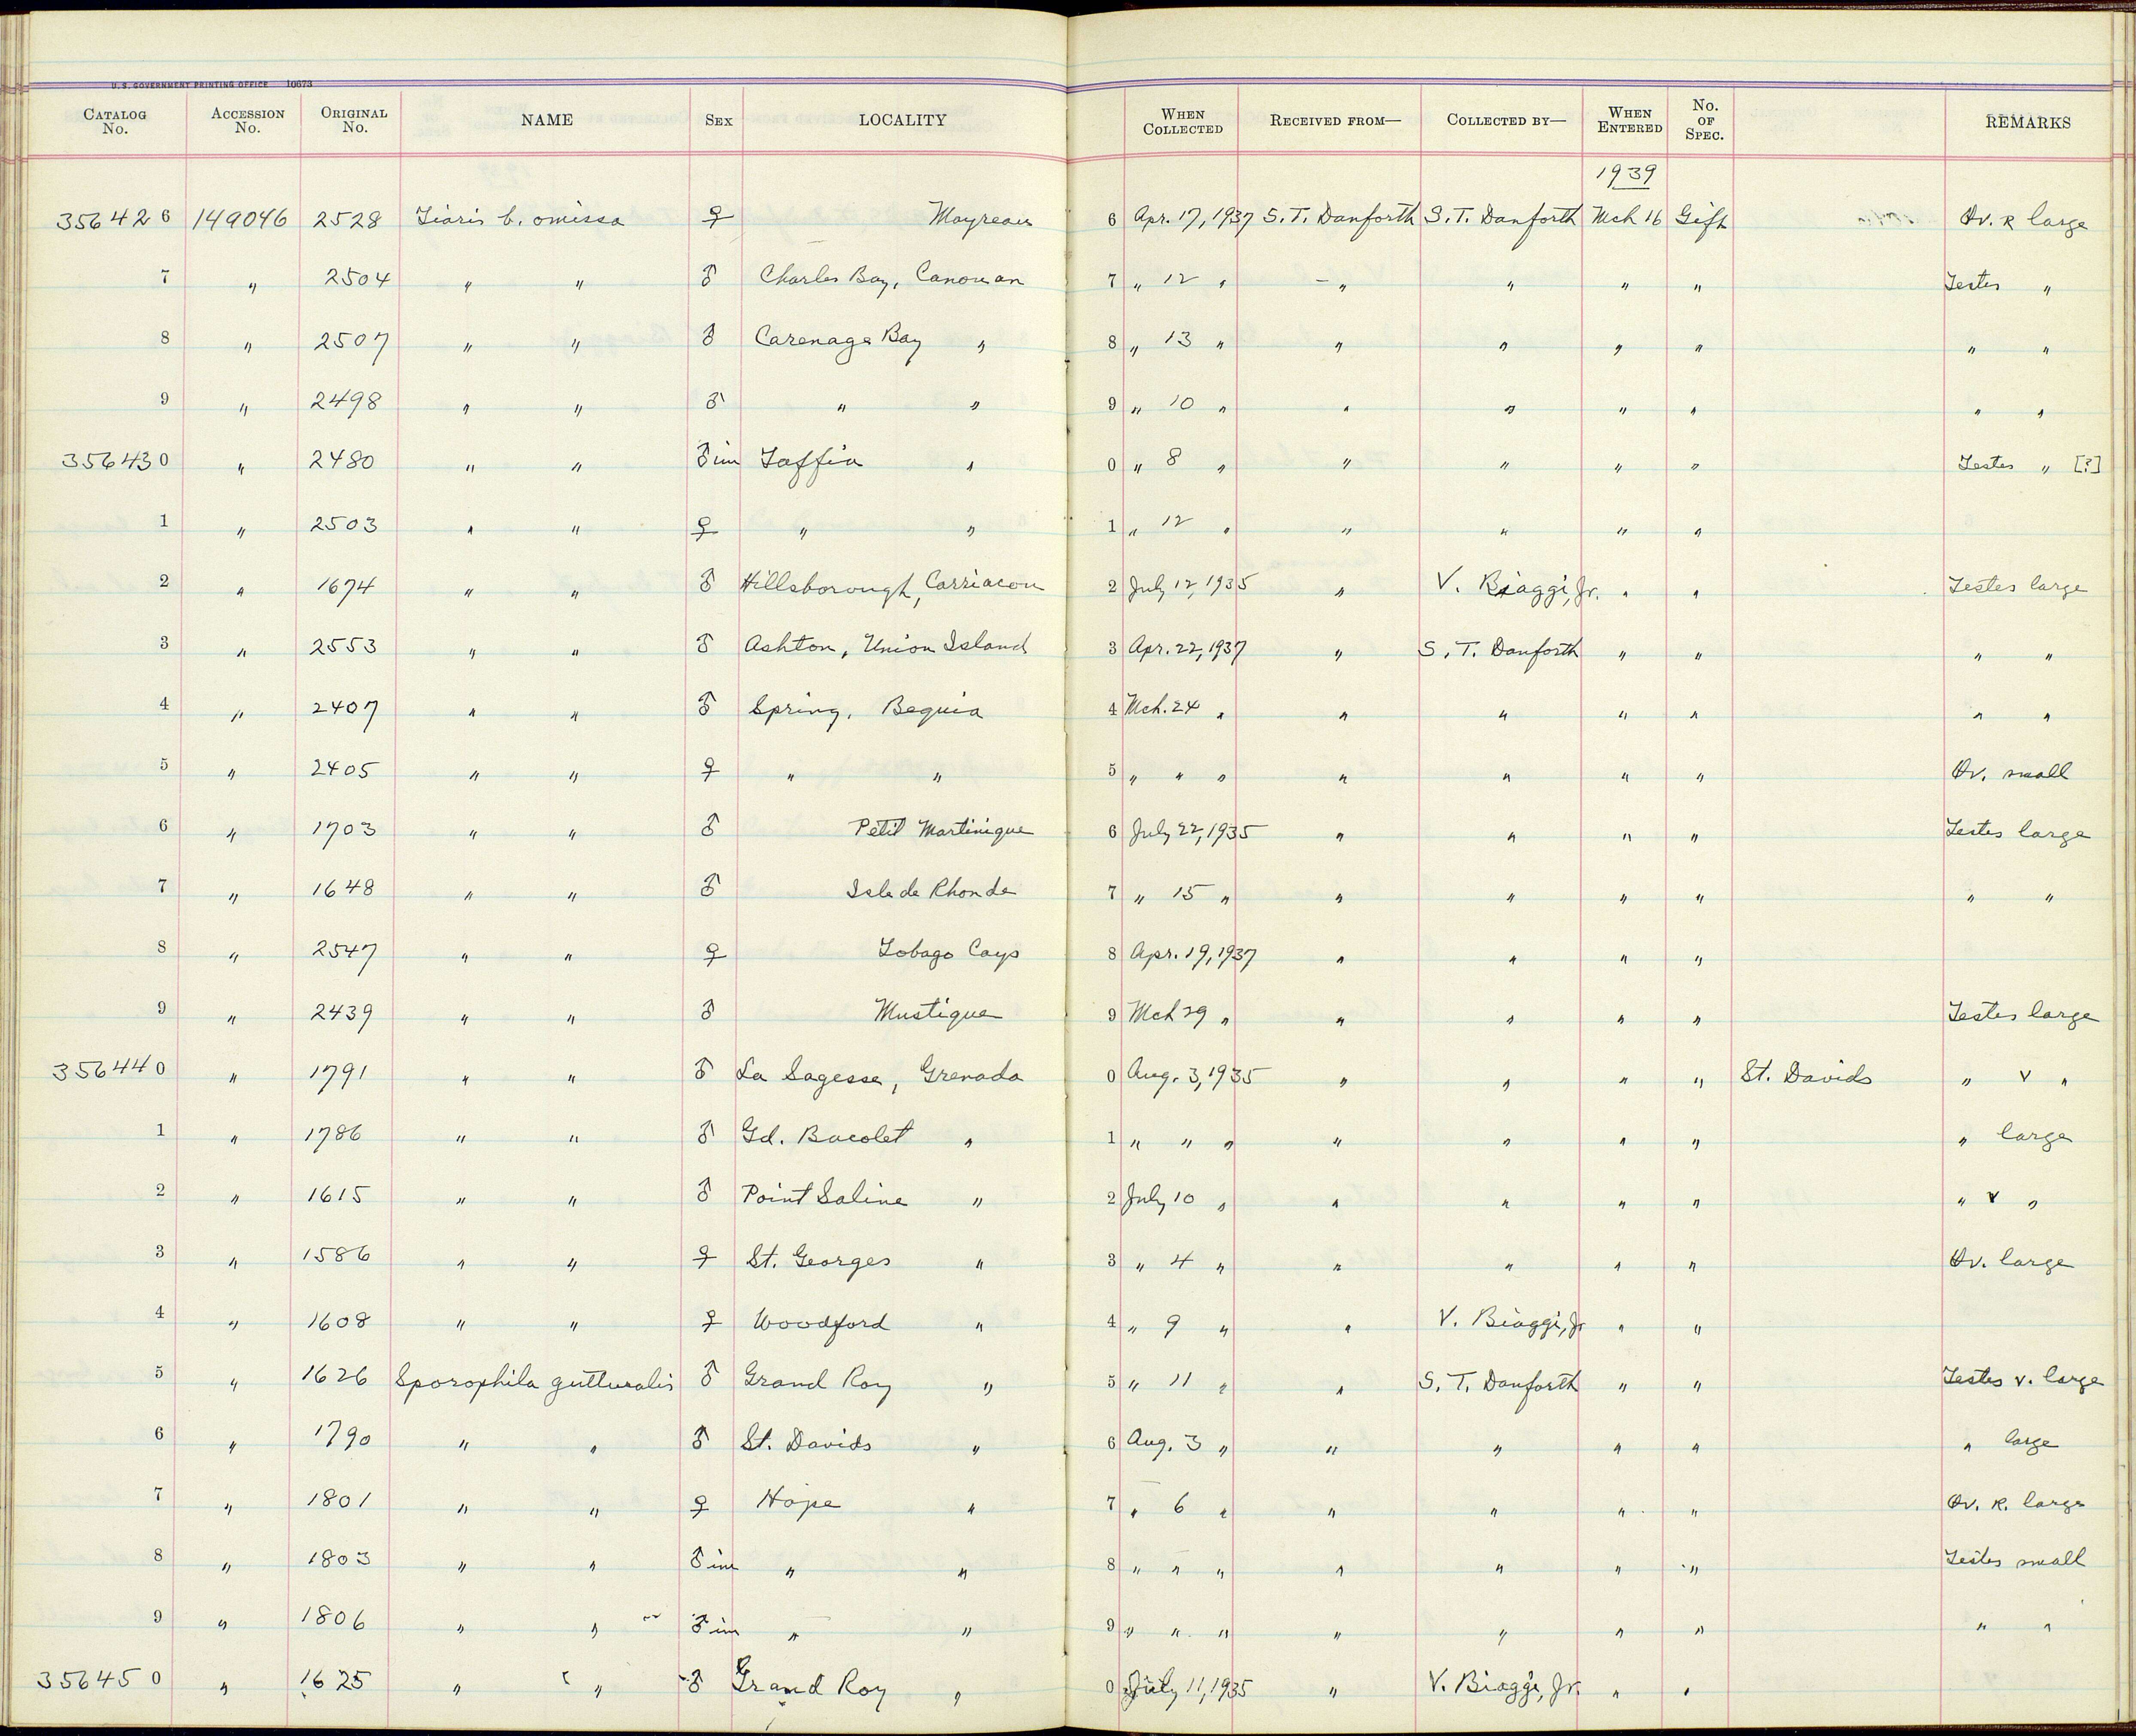 U.S. GOVERNMENT PRINTING OFFICE 10673
CATALOG No. ACCESSION No. ORIGINAL No. NAME SEX LOCALITY WHEN COLLECTED RECEIVED FROM— COLLECTED BY— WHEN ENTERED No. OF SPEC. REMARKS
1939
356426 149046 2528 Tiaris b. omissa ♀ Mayreau 6 Apr. 17, 1937 S. T. Danforth S. T. Danforth Mch 16 Gift Ov. R large
7 " 2504 " " ♂ Charles Bay, Canouan 7 " 12 " " " " " Testes "
8 " 2507 " " ♂ Carenage Bay " 8 " 13 " " " " " " "
9 " 2498 " " ♂ " " 9 " 10 " " " " " " "
356430 " 2480 " " ♂ im Taffia " 0 " 8 " " " " " Testes " [?]
1 " 2503 " " ♀ " " 1 " 12 " " " " "
2 " 1674 " " ♂ Hillsborough, Carriacou 2 July 12, 1935 " V. Biaggi, Jr. " " Testes large
3 " 2553 " " ♂ Ashton, Union Island 3 Apr. 22, 1937 " S. T. Danforth " " " "
4 " 2407 " " ♂ Spring, Bequia 4 Mch. 24 " " " " " " "
5 " 2405 " " ♀ " " 5 " " " " " " " Ov. small
6 " 1703 " " ♂ Petit Martinique 6 July 22, 1935 " " " " Testes large
7 " 1648 " " ♂ Isle de Rhonde 7 " 15 " " " " " " "
8 " 2547 " " ♀ Tobago Cays 8 Apr. 19, 1937 " " " "
9 " 2439 " " ♂ Mustique 9 Mch 29 " " " " " Testes large
356440 " 1791 " " ♂ La Sagesse, Grenada 0 Aug. 3, 1935 " " " " St. Davids " v "
1 " 1786 " " ♂ Gd. Bacolet " 1 " " " " " " " " large
2 " 1615 " " ♂ Point Saline " 2 July 10 " " " " " " v "
3 " 1586 " " ♀ St. Georges " 3 " 4 " " " " " Ov. large
4 " 1608 " " ♀ Woodford " 4 " 9 " " V. Biaggi, Jr " "
5 " 1626 Sporophila gutturalis ♂ Grand Roy " 5 " 11 " " S. T. Danforth " " Testes v. large
6 " 1790 " " ♂ St. Davids " 6 Aug. 3 " " " " " " large
7 " 1801 " " ♀ Hope " 7 " 6 " " " " " Ov. R. large
8 " 1803 " " ♂ im " " 8 " " " " " " " Testes small
9 " 1806 " " ♂ im " " 9 " " " " " " " " "
356450 " 1625 " " ♂ Grand Roy " 0 July 11, 1935 " V. Biaggi, Jr. " "